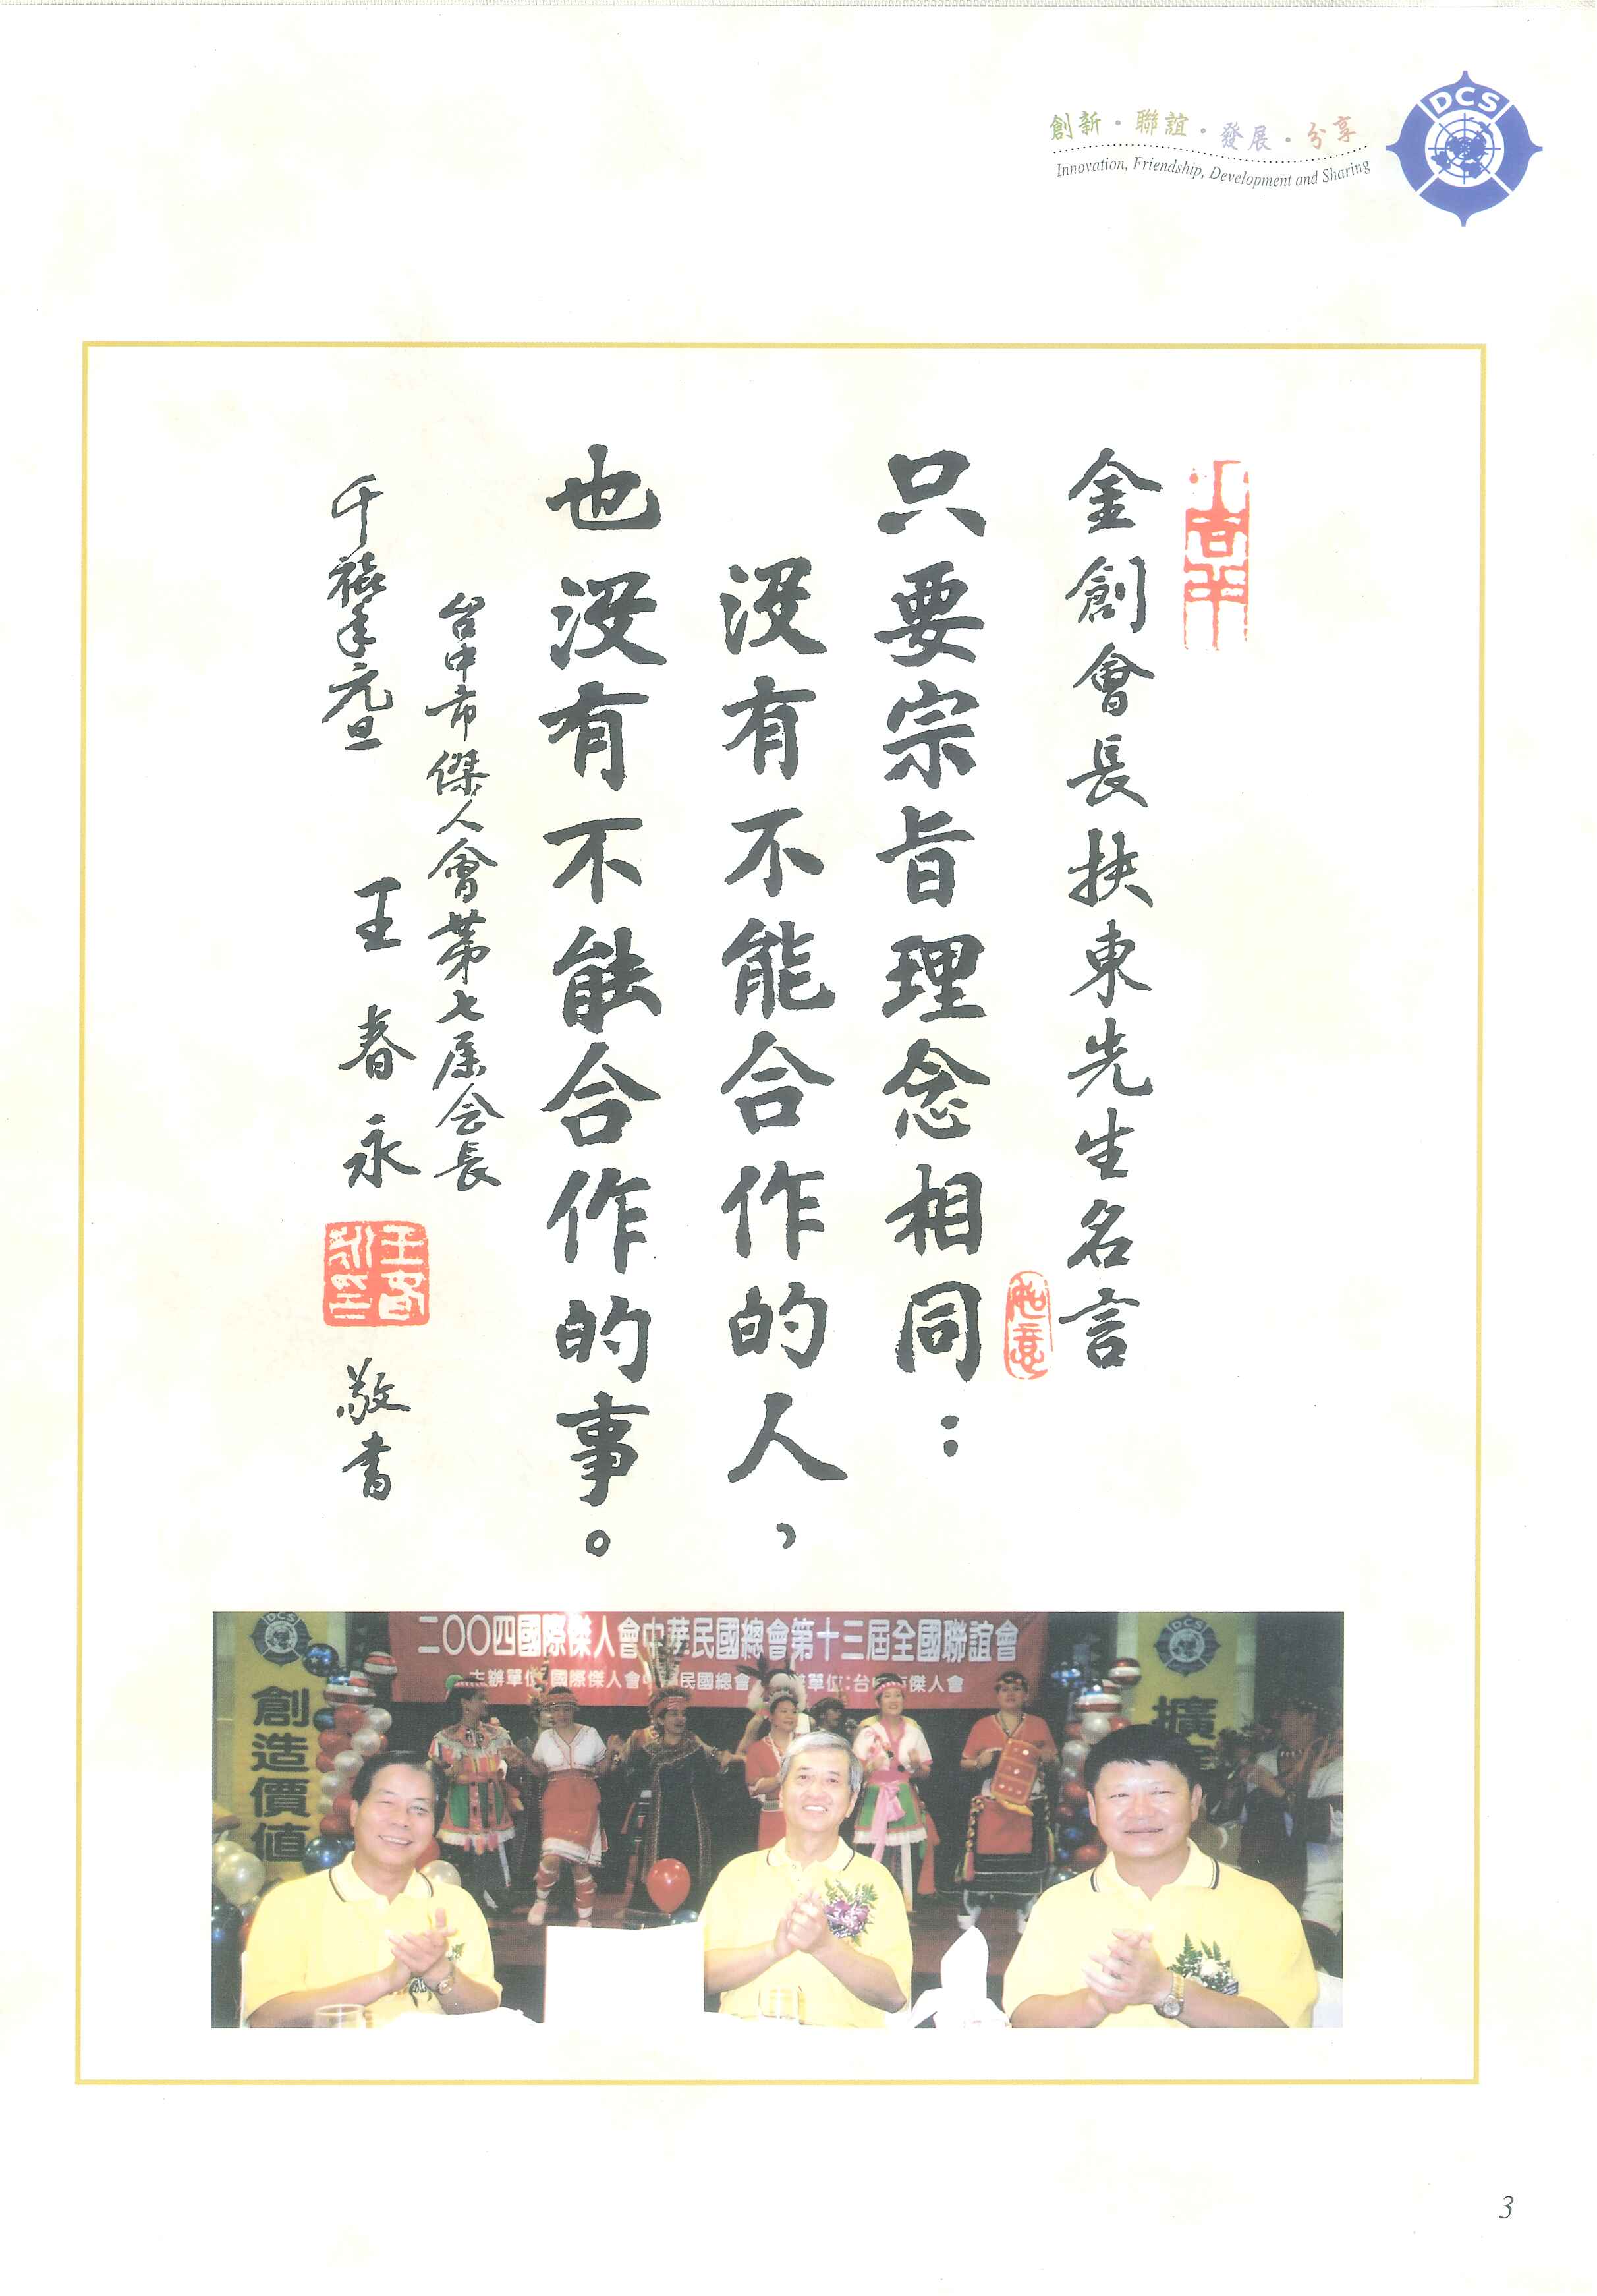 DCS
創新・聯誼・發展・分享
Innovation, Friendship, Development and Sharing
金創會長扶東先生名言
只要宗旨理念相同：
没有不能合作的人，
也没有不能合作的事。
台中市傑人會第七屆会長
千禧年元旦
王春永
敬書
如意
DCS
二〇〇四國際傑人會中華民國總會第十三屆全國聯誼會
主辦單位:國際傑人會中華民國總會
辦單位:台中市傑人會
創造價值
DCS
擴
3